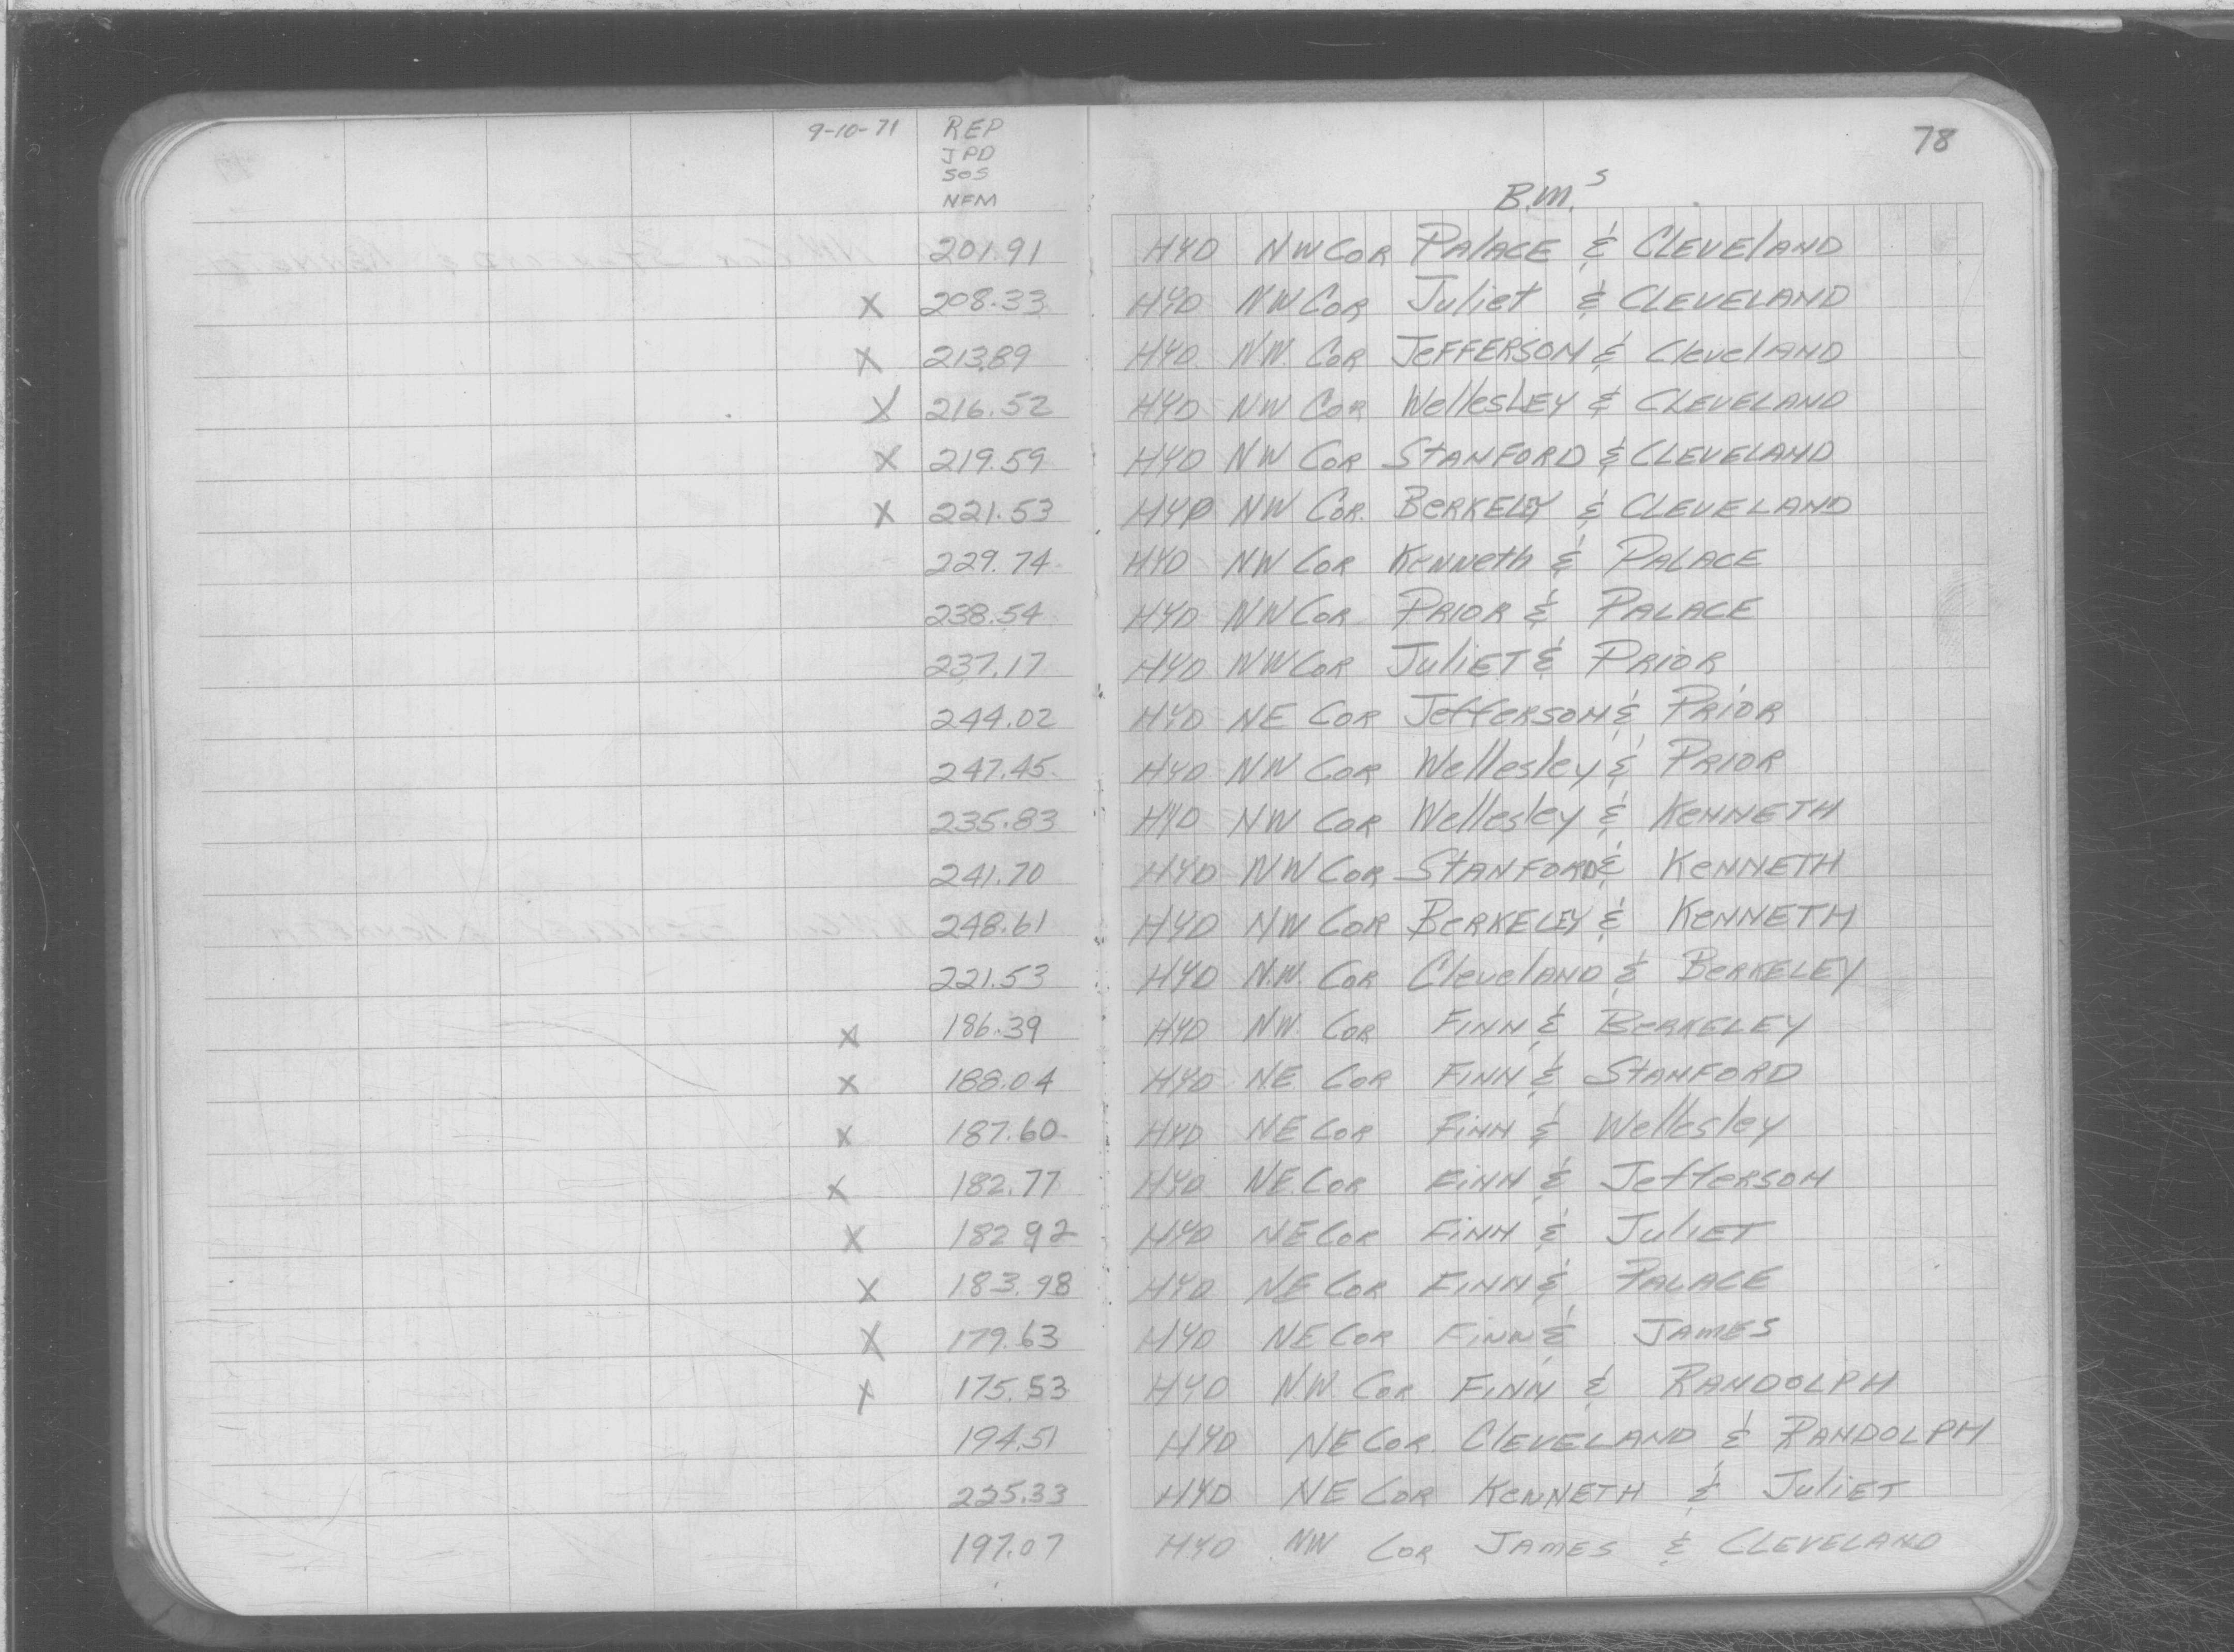 9-10-71 REP 78
JPD
SOS
NFM B.M.s
201.91 HYD NW COR PALACE & CLEVELAND
X 208.33 HYD NW COR Juliet & CLEVELAND
X 213.89 HYD NW. COR JEFFERSON & CleveLAND
X 216.52 HYD NW COR WellesLEY & CLEVELAND
X 219.59 HYD NW COR STANFORD & CLEVELAND
X 221.53 HYD NW COR. BERKELEY & CLEVELAND
229.74 HYD NW COR Kenneth & PALACE
238.54 HYD NW COR PRIOR & PALACE
237.17 HYD NW COR JULIET & PRIOR
244.02 HYD NE COR Jefferson & PRIOR
247.45 HYD NW COR Wellesley & PRIOR
235.83 HYD NW COR Wellesley & KENNETH
241.70 HYD NW COR STANFORD & KENNETH
248.61 HYD NW COR BERKELEY & KENNETH
221.53 HYD N.W. COR CleveLAND & BERKELEY
X 186.39 HYD NW. COR FINN & BERKELEY
X 188.04 HYD NE COR FINN & STANFORD
X 187.60 HYD NE COR FINN & Wellesley
X 182.77 HYD NE COR FINN & Jefferson
X 182 92 HYD NE COR FINN & JULIET
X 183.98 HYD NE COR FINN & PALACE
X 179.63 HYD NE COR FINN & JAMES
X 175.53 HYD N.W. COR FINN & RANDOLPH
194.51 HYD NE COR. CLEVELAND & RANDOLPH
HYD NE COR KENNETH & JULIET
197.07 HYD NW COR JAMES & CLEVELAND